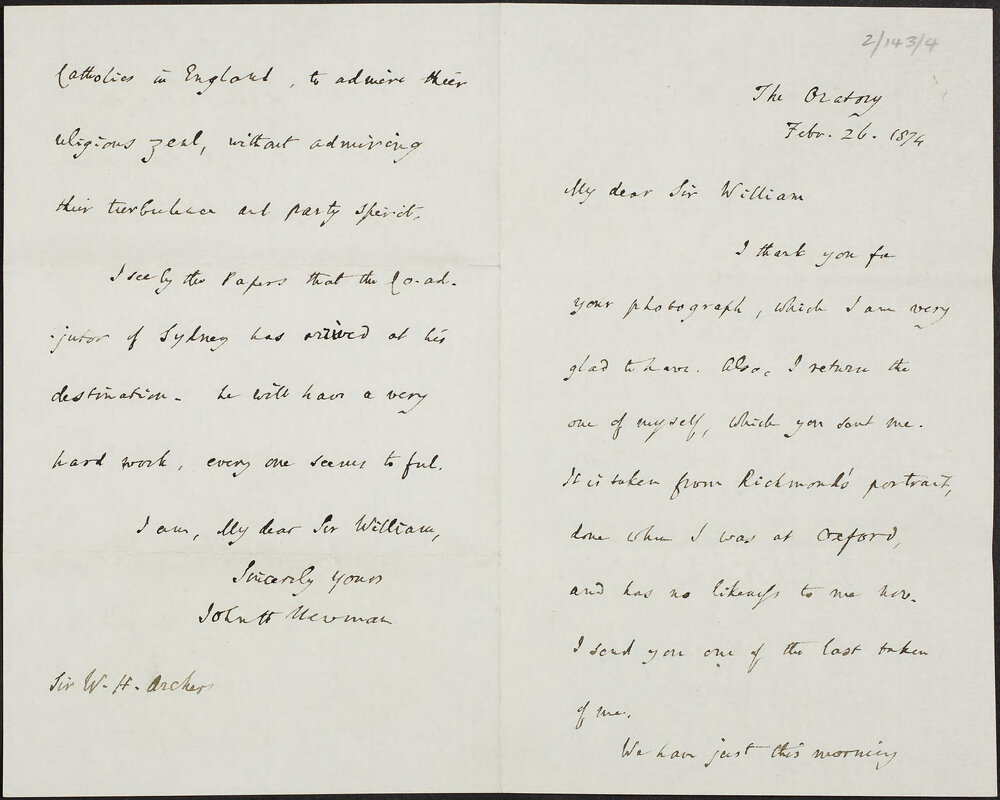 2/143/4
The Oratory
Febr. 26. 1874
My dear Sir William
I thank you for
your photograph, which I am very
glad to have. Also, I return the
one of myself, which you sent me.
It is taken from Richmond's portrait,
done when I was at Oxford,
and has no likeness to me now.
I send you one of the last taken
of me.
We have just this morning
Catholics in England, to admire their
religious zeal, without admiring
their turbulence and party spirit.
I see by the Papers that the Co-ad-
jutor of Sydney has arrived at his
destination. he will have a very
hard work, every one seems to feel.
I am, My dear Sir William,
Sincerely yours
John H Newman
Sir W. H. Archer